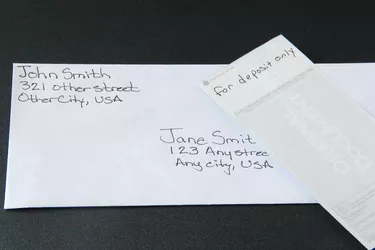 John Smith
321 Other street
Other City, USA
for deposit only
Jane Smit
123 Anystree
Any city, USA